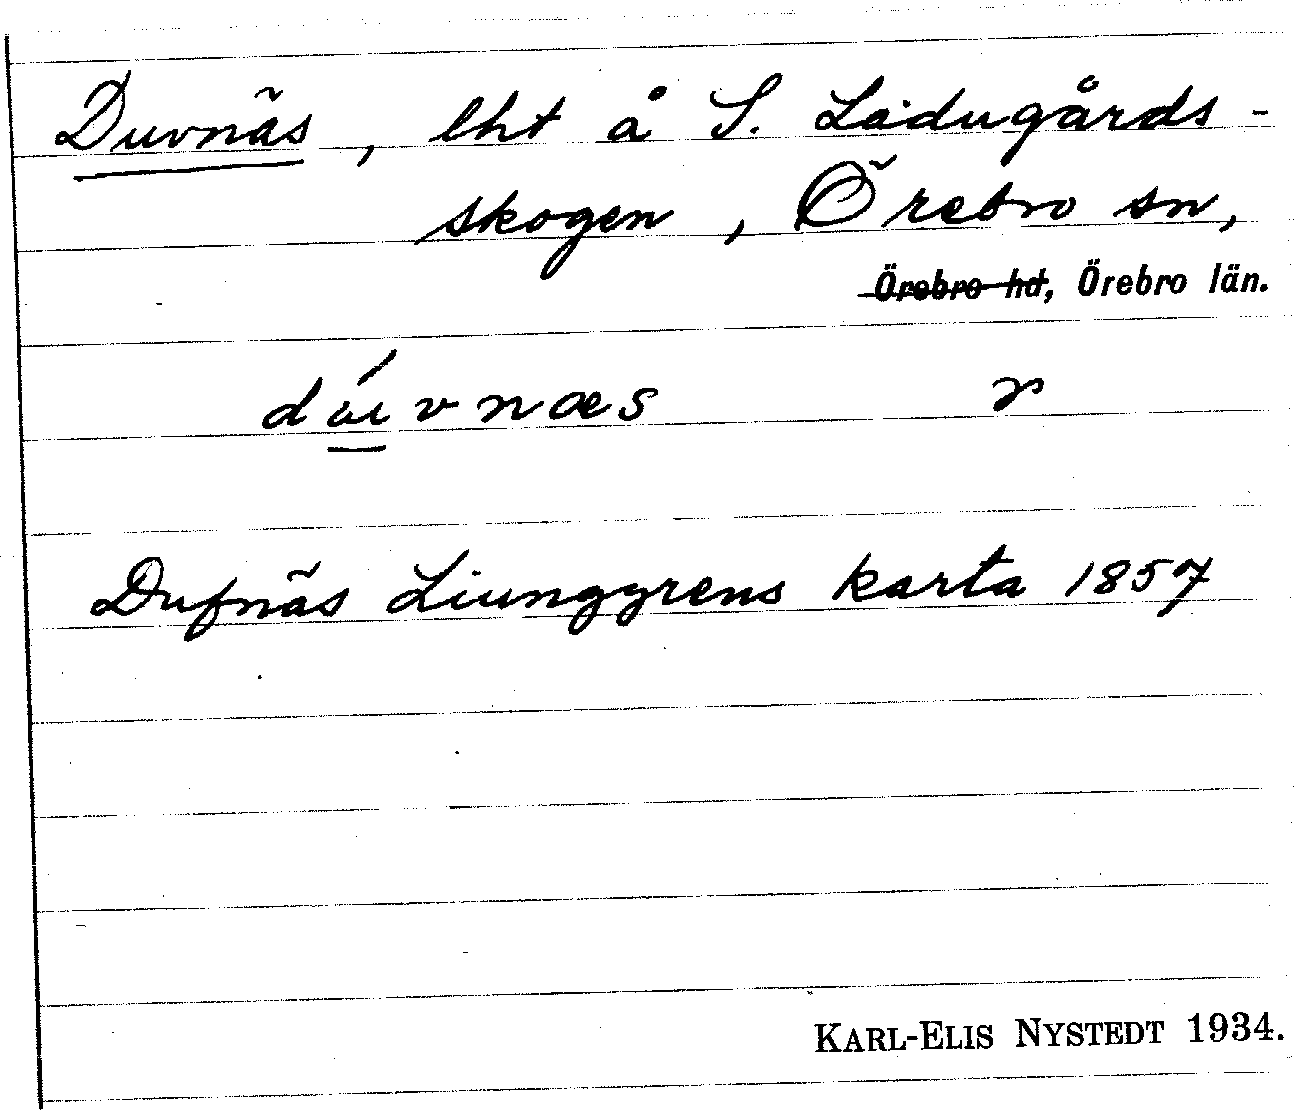 Duvnäs, lht å S. Ladugårds-
skogen, Örebro sn,
Örebro hd, Örebro län.
Dufnäs Liunggrens karta 1857
KARL-ELIS NYSTEDT 1934.